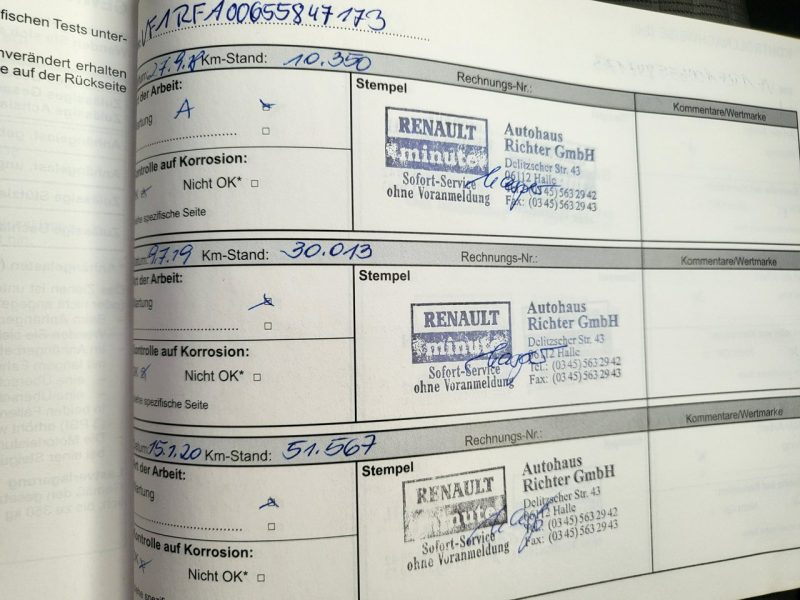 fischen Tests unter-
nverändert erhalten
e auf der Rückseite
VF1RFA00655847173
27.9.18 Km-Stand: 10.350
Rechnungs-Nr.:
Kommentare/Wertmarke
der Arbeit:
Stempel
A
RENAULT
minute
Sofort-Service
ohne Voranmeldung
Autohaus
Richter GmbH
Delitzscher Str. 43
06112 Halle
(03 45) 563 29 42
Fax: (03 45) 563 29 43
ontrolle auf Korrosion:
Nicht OK*
ehe spezifische Seite
9.7.19 Km-Stand: 30.013
Rechnungs-Nr.:
Kommentare/Wertmarke
rt der Arbeit:
Stempel
artung
RENAULT
minute
Sofort-Service
ohne Voranmeldung
Autohaus
Richter GmbH
Delitzscher Str. 43
Halle
Tel.: (03 45) 563 29 42
Fax: (03 45) 563 29 43
ontrolle auf Korrosion:
Nicht OK*
ehe spezifische Seite
atum: 15.1.20 Km-Stand: 51.567
Rechnungs-Nr.:
Kommentare/Wertmarke
rt der Arbeit:
Stempel
artung
RENAULT
minute
Sofort-Service
ohne Voranmeldung
Autohaus
Richter GmbH
Delitzscher Str. 43
06112 Halle
(03 45) 563 29 42
Fax: (03 45) 563 29 43
ontrolle auf Korrosion:
Nicht OK*
ehe spezifische Seite